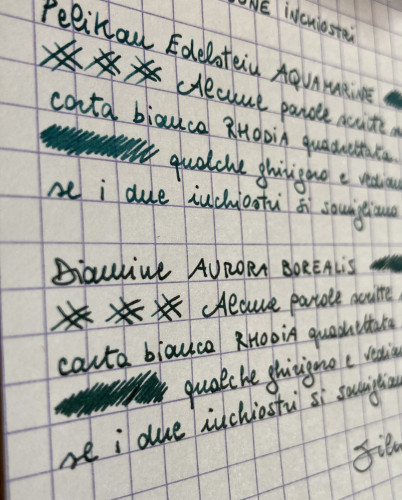 INCHIOSTRI
Pelikan Edelstein AQUAMARINE
Alcune parole scritte
carta bianca RHODIA quadrettata
qualche ghirigoro e vediamo
se i due inchiostri si somigliano
Diamine AURORA BOREALIS
Alcune parole scritte
carta bianca RHODIA quadrettata
qualche ghirigoro e vediamo
se i due inchiostri si somigliano